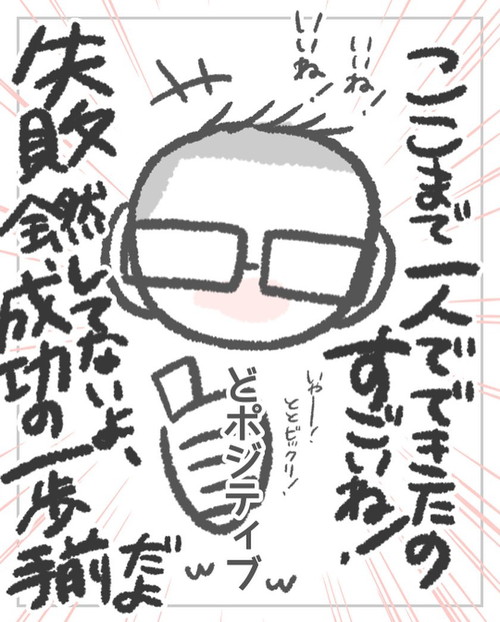 ここまで一人でできたの
すごいね!
いいね!
いいね!
いやー!
ととビックリ!
どポジティブ
ww
失敗
全然してないよ、
成功の一歩
手前だよ